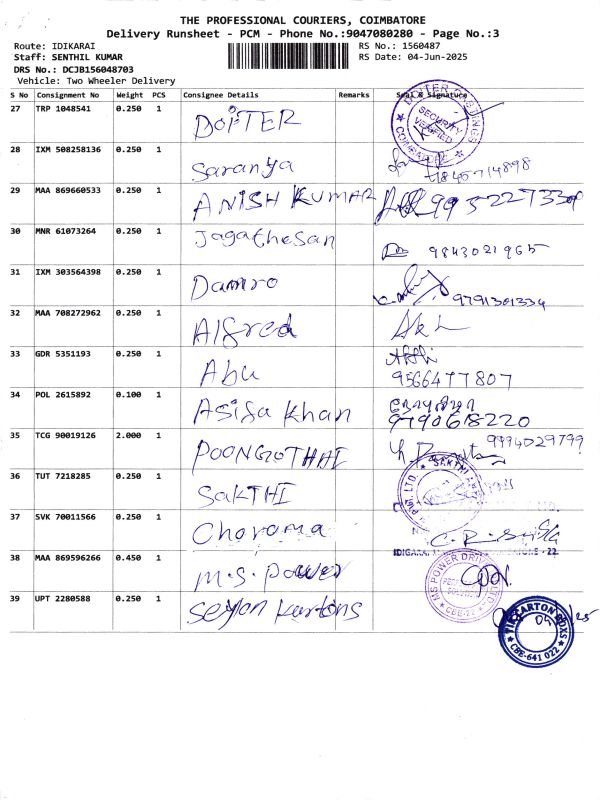 THE PROFESSIONAL COURIERS, COIMBATORE
Delivery Runsheet - PCM - Phone No.:9047080280 - Page No.:3
Route: IDIKARAI RS No.: 1560487
Staff: SENTHIL KUMAR RS Date: 04-Jun-2025
DRS No.: DCJB156048703
Vehicle: Two Wheeler Delivery
S No Consignment No Weight PCS Consignee Details Remarks Seal & Signature
27 TRP 1048541 0.250 1 DOPTER
SECURITY VERIFIED
28 IXM 508258136 0.250 1 Saranya
29 MAA 869660533 0.250 1 ANISH KUMAR
30 MNR 61073264 0.250 1 Jagathesan 9843021965
31 IXM 303564398 0.250 1 Damro 9791301334
32 MAA 708272962 0.250 1 Alfred
33 GDR 5351193 0.250 1 Abu
9566477807
34 POL 2615892 0.100 1 Asifa Khan
9790618220
35 TCG 90019126 2.000 1 POONGOTHAI 9994029799
36 TUT 7218285 0.250 1 SAKTHI
37 SVK 70011566 0.250 1 Chorama
38 MAA 869596266 0.450 1 M.S. Power
MS POWER
39 UPT 2280588 0.250 1 Seyon Kartons
CBE-641 022